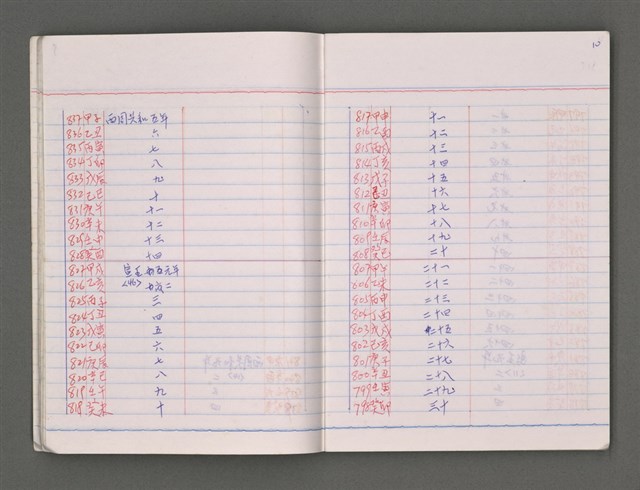 10
837 甲子 西周共和五年
836 乙丑 六
835 丙寅 七
834 丁卯 八
833 戊辰 九
832 乙巳 十
831 庚午 十一
830 辛未 十二
829 壬申 十三
828 癸酉 十四
827 甲戌 宣王 元年
826 乙亥 <46> 二
825 丙子 三
824 丁丑 四
823 戊寅 五
822 己卯 六
821 庚辰 七
820 辛巳 八
819 壬午 九
818 癸未 十
817 甲申 十一
816 乙酉 十二
815 丙戌 十三
814 丁亥 十四
813 戊子 十五
812 己丑 十六
811 庚寅 十七
810 辛卯 十八
809 壬辰 十九
808 癸巳 二十
807 甲午 二十一
806 乙未 二十二
805 丙申 二十三
804 丁酉 二十四
803 戊戌 二十五
802 己亥 二十六
801 庚子 二十七
800 辛丑 二十八
799 壬寅 二十九
798 癸卯 三十